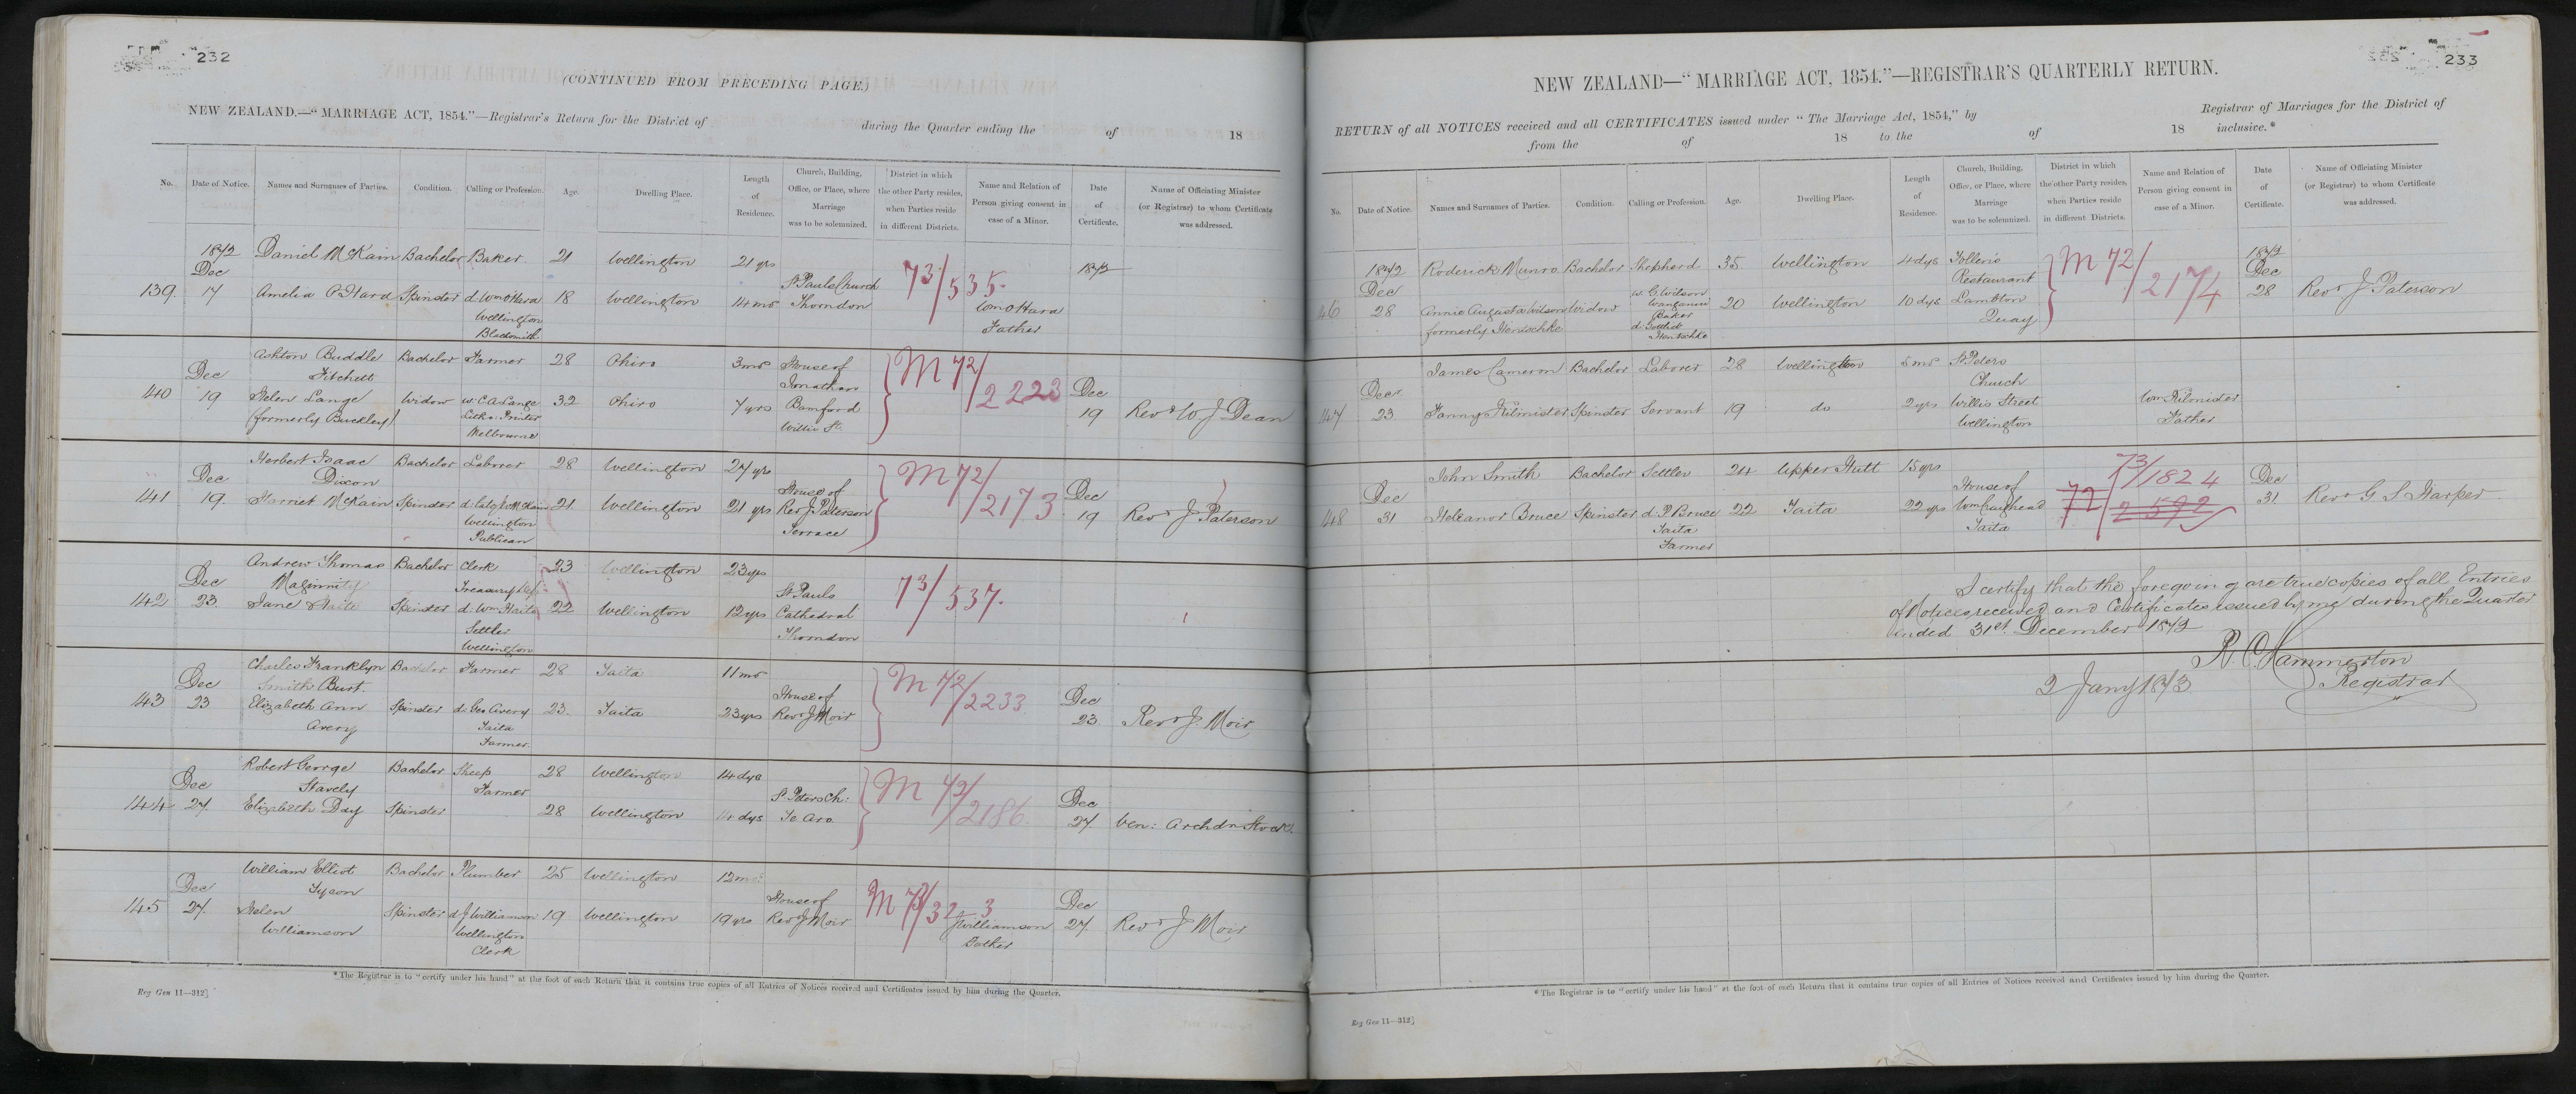 232
(CONTINUED FROM PRECEDING PAGE.)
NEW ZEALAND.—"MARRIAGE ACT, 1854."—Registrar's Return for the District of during the Quarter ending the of 18
No. Date of Notice. Names and Surnames of Parties. Condition. Calling or Profession. Age. Dwelling Place. Length of Residence. Church, Building, Office, or Place, where Marriage was to be solemnized. District in which the other Party resides, when Parties reside in different Districts. Name and Relation of Person giving consent in case of a Minor. Date of Certificate. Name of Officiating Minister (or Registrar) to whom Certificate was addressed.
1872 Daniel McKain Bachelor Baker 21 Wellington 21 yrs 1872
Dec St Pauls Church 73/535.
139. 17 Amelia O'Hara Spinster d. Wm O'Hara 18 Wellington 14 mos Thorndon Wm O'Hara
Wellington Father
Blacksmith
Ashton Buddle Bachelor Farmer 28 Ohiro 3 mos House of M 72/2223
Dec Fitchett Jonathan Dec
140 19 Helen Lange Widow w. C A Lange 32 Ohiro 7 yrs Bamford 19 Revd W J Dean
(formerly Buckley) Litho. Printer Willis St.
Melbourne
Herbert Isaac Bachelor Laborer 28 Wellington 27 yrs M 72/2173
Dec Dixon House of Dec
141 19. Harriet McKain Spinster 21 Wellington 21 yrs Rev J. Paterson 19 Revd J Paterson
Wellington Terrace
Publican
Andrew Thomas Bachelor Clerk 23 Wellington 23 yrs
Dec Maginnity Treasury St Pauls 73/537.
142 23. Jane Spinster d. Wm 22 Wellington 12 yrs Cathedral
Settler Thorndon
Wellington
Charles Franklyn Bachelor Farmer 28 Taita 11 mos M 72/2233
Dec Smith Burt. House of Dec
143 23 Elizabeth Ann Spinster d. Geo Avery 23. Taita 23 yrs Revd J Moir 23 Revd J. Moir
Avery Taita
Farmer.
Robert George Bachelor Sheep 28 Wellington 14 dys M 72/2186
Dec Stavely Farmer St Peters Ch: Dec
144 27. Elizabeth Day Spinster 28 Wellington 4 dys Te Aro 27. Ven: Archdn Stock
William Elliot Bachelor Plumber 25 Wellington 12 mos
Dec Tyson House of M 73/32 3 Dec
145 27. Helen Spinster d J Williamson 19 Wellington 19 yrs Revd J Moir J Williamson 27. Revd J Moir
Williamson Wellington Father
Clerk
*The Registrar is to "certify under his hand" at the foot of each Return that it contains true copies of all Entries of Notices received and Certificates issued by him during the Quarter.
Reg Gen 11—312]
233
NEW ZEALAND—"MARRIAGE ACT, 1854."—REGISTRAR'S QUARTERLY RETURN.
RETURN of all NOTICES received and all CERTIFICATES issued under "The Marriage Act, 1854," by Registrar of Marriages for the District of
from the of 18 to the of 18 inclusive.*
No. Date of Notice. Names and Surnames of Parties. Condition. Calling or Profession. Age. Dwelling Place. Length of Residence. Church, Building, Office, or Place, where Marriage was to be solemnized. District in which the other Party resides, when Parties reside in different Districts. Name and Relation of Person giving consent in case of a Minor. Date of Certificate. Name of Officiating Minister (or Registrar) to whom Certificate was addressed.
1872 Roderick Munro Bachelor Shepherd 35 Wellington 4 dys M 72/2174 1872
Dec w. G. Wilson Restaurant Dec
146 28 Annie Augusta Wilson Widow Wanganui 20 Wellington 10 dys Lambton 28 Revd J Paterson
formerly Hentschke Baker Quay
d. Gottlieb
Hentschke
James Cameron Bachelor Laborer 28 Wellington 5 mos St Peters
Decr Church
147 23 Fanny Kilminster Spinster Servant 19 do 2 yrs Willis Street Wm Kilminster
Wellington Father
John Smith Bachelor Settler 24 Upper Hutt 15 yrs 73/1824
Dec House of Dec
148 31 Heleanor Bruce Spinster d. P Bruce 22 Taita 22 yrs Wm Craighead 72/2592 31. Revd G S Harper
Taita Taita
Farmer
I certify that the foregoing are true copies of all Entries
of Notices received and Certificates issued by me during the Quarter
ended 31st December 1872
R. C. Hammerton
2 Jany 1873 Registrar
*The Registrar is to "certify under his hand" at the foot of each Return that it contains true copies of all Entries of Notices received and Certificates issued by him during the Quarter.
Reg Gen 11—312]